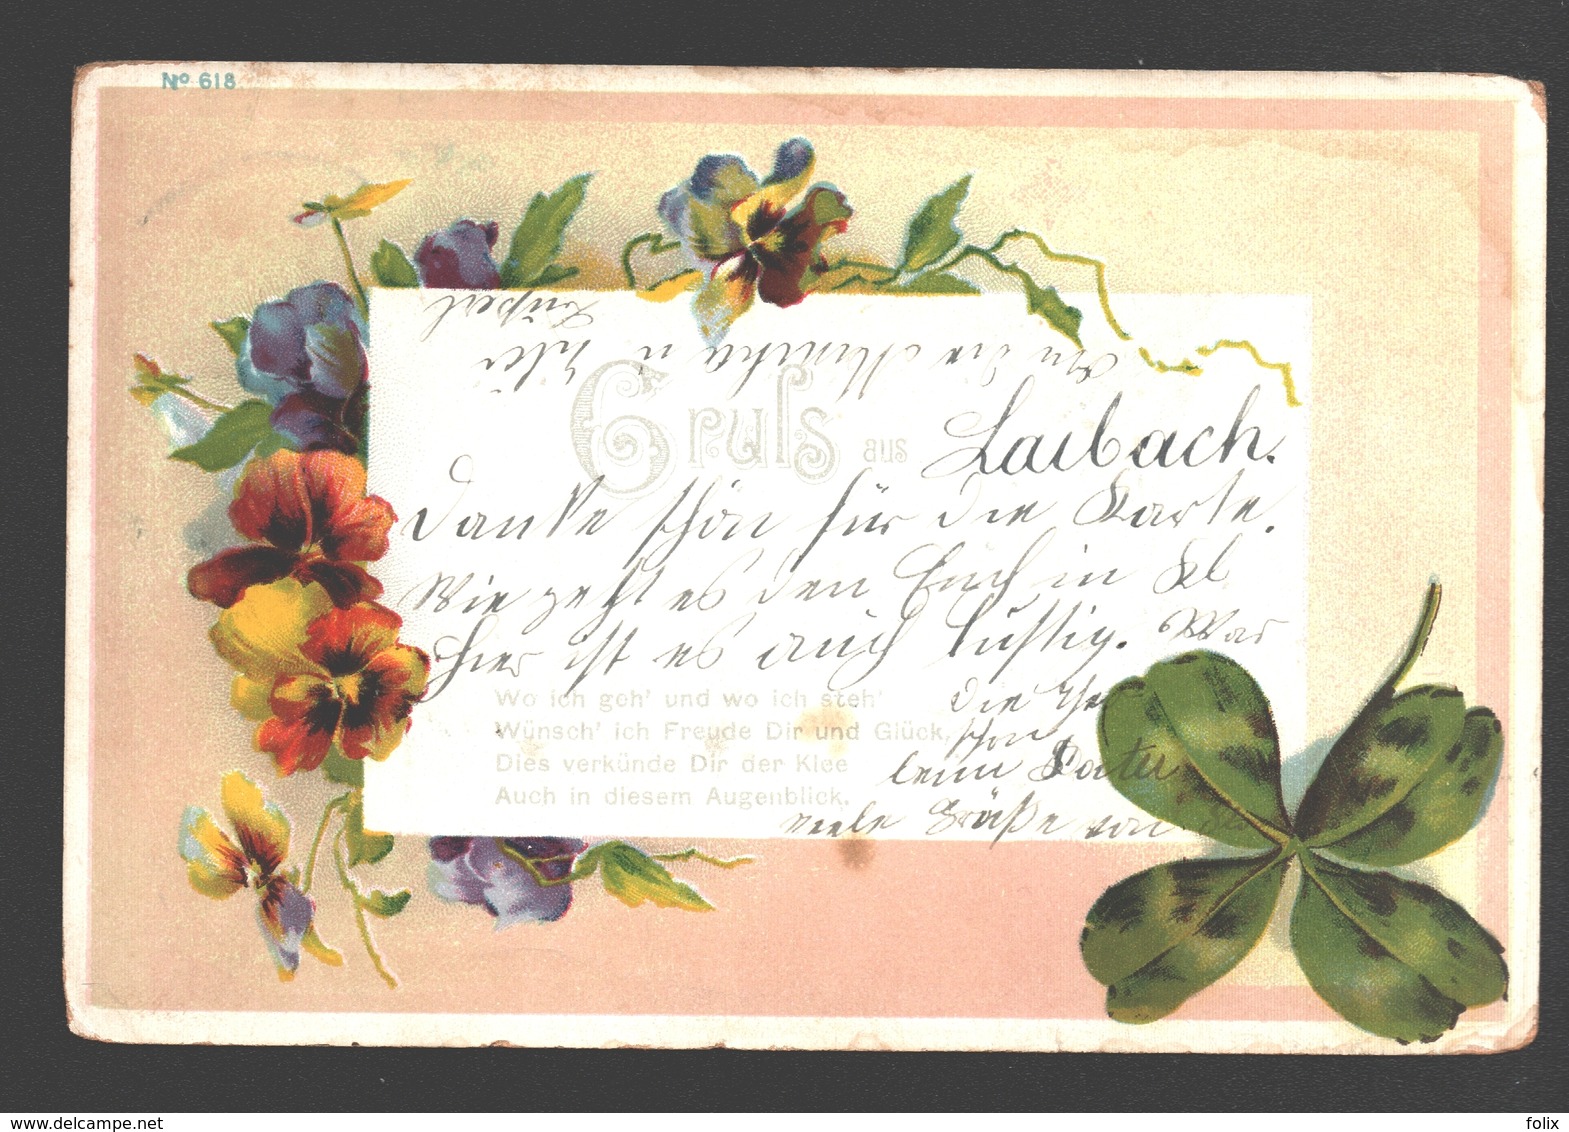 No 618
Gruss aus Laibach.
Danke schön für die Karte.
Wie geht es den Euch in Kl
Hier ist es auch lustig. War
die
schon
beim Vater
viele Grüße von
Wo ich geh' und wo ich steh'
Wünsch' ich Freude Dir und Glück,
Dies verkünde Dir der Klee
Auch in diesem Augenblick.
An die u
delcampe.net
folix